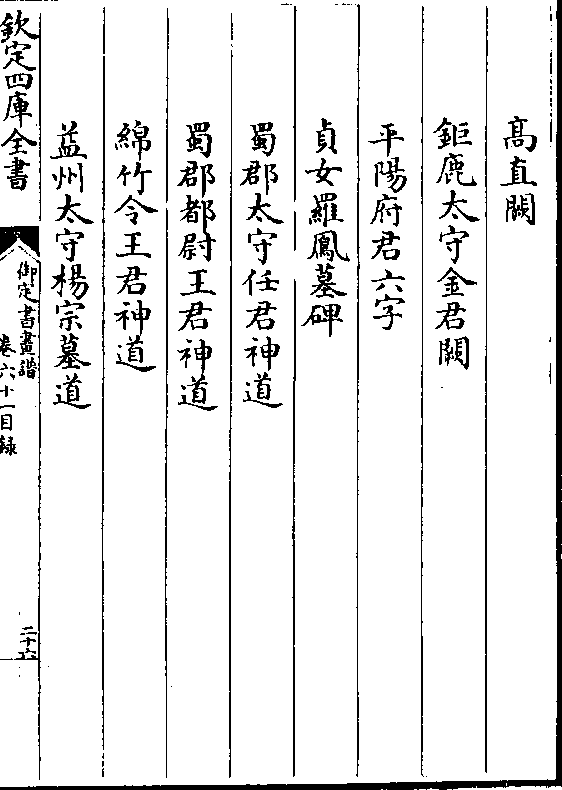 髙直闕
鉅鹿太守金君闕
平陽府君六字
貞女羅鳳墓碑
蜀郡太守任君神道
蜀郡都尉王君神道
綿竹令王君神道
益州太守楊宗墓道
欽定四庫全書
御定書畫譜
卷六十一目録
二十六